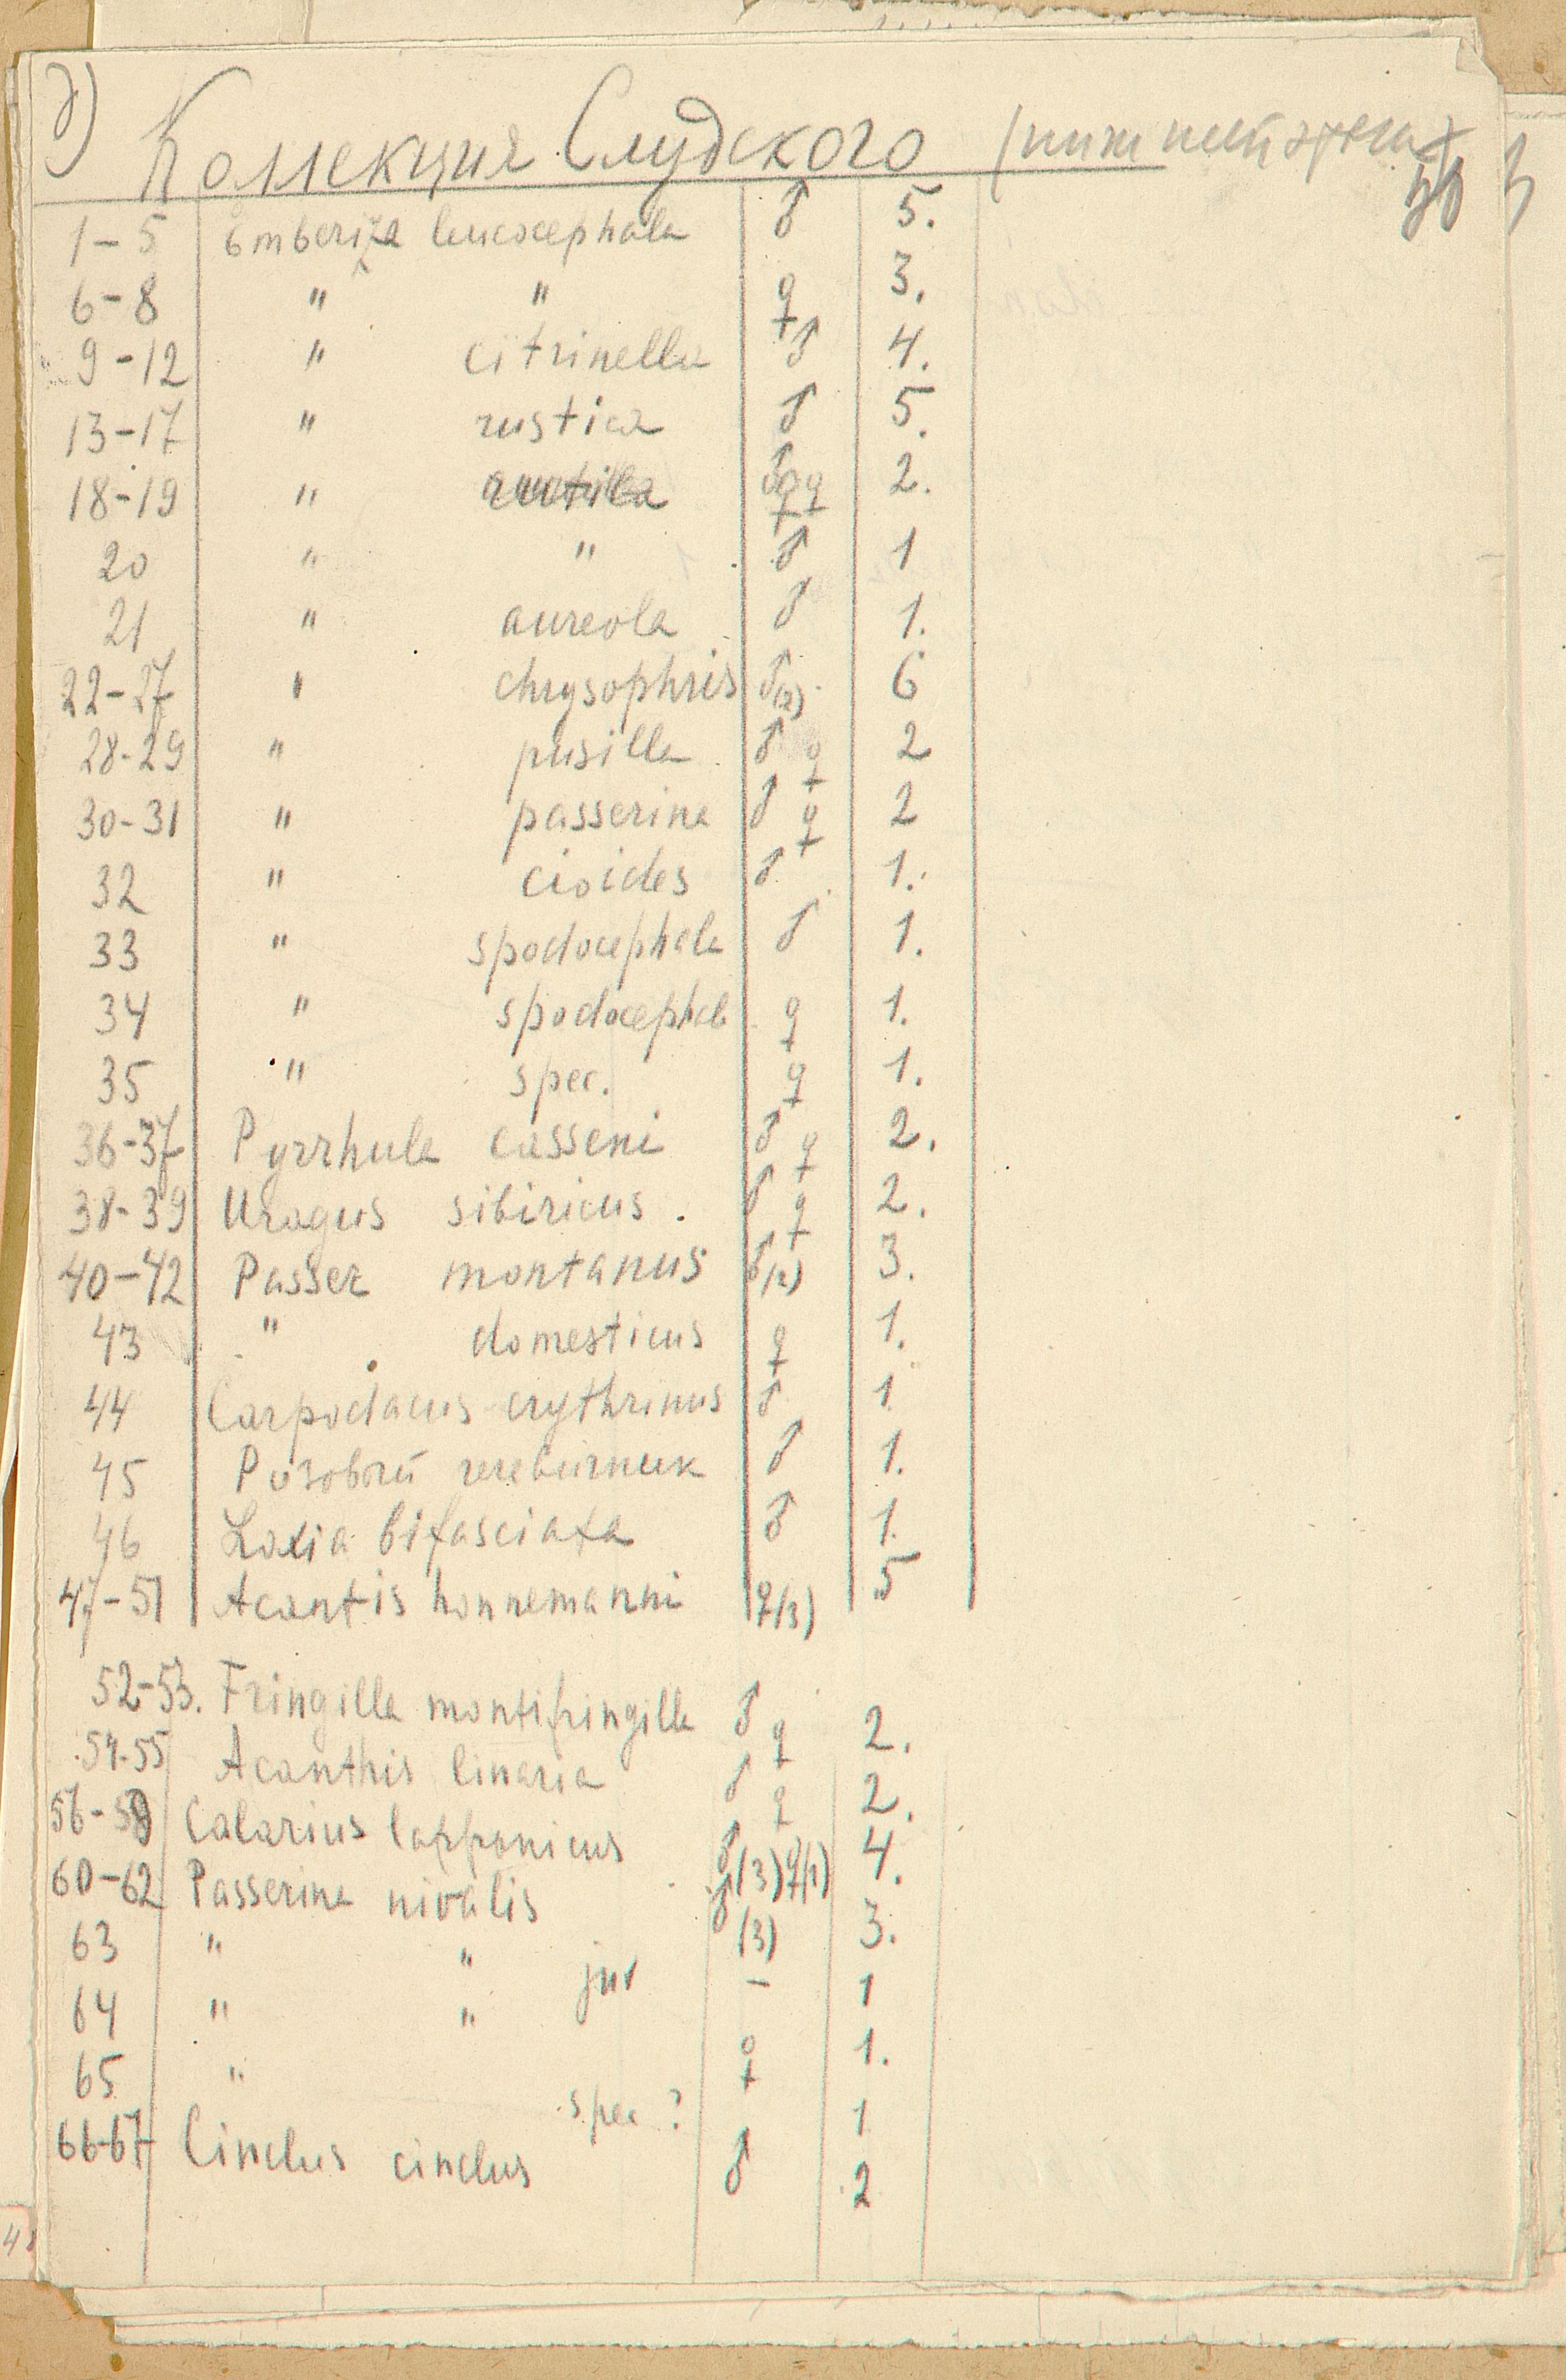 д) Коллекция Слудского
1-5 Emberiza leucocephala ♂ 5.
6-8 " " ♀ 3.
9-12 " citrinella ♂ 4.
13-17 " rustica ♂ 5.
18-19 " rutila ♂♀♀ 2.
20 " " ♂ 1
21 " aureola ♂ 1.
22-27 " chrysophris ♂(2) 6
28-29 " pusilla ♂ ♀ 2
30-31 " passerina ♂ ♀ 2
32 " cioides ♂ 1.
33 " spodocephala ♂ 1.
34 " spodocephal ♀ 1.
35 " spec. ♀ 1.
36-37 Pyrrhula casseni ♂ ♀ 2.
38-39 Uragus sibiricus. ♂ ♀ 2.
40-42 Passer montanus ♂(2) 3.
43 " domesticus ♀ 1.
44 Carpodacus erythrinus ♂ 1
45 Розовый чечевичник ♂ 1.
46 Loxia bifasciata ♂ 1.
47-51 Acantis honnemanni ♀(3) 5
52-53. Fringilla montifringilla ♂ ♀ 2.
54-55 Acanthis linaria ♂ ♀ 2.
56-59 Calarius lapponicus ♂(3) ♀(1) 4.
60-62 Passerina nivalis ♂(3) 3.
63 " " juv - 1
64 " " ♀ 1.
65 " spec ? 1
66-67 Cinclus cinclus ♂ 2